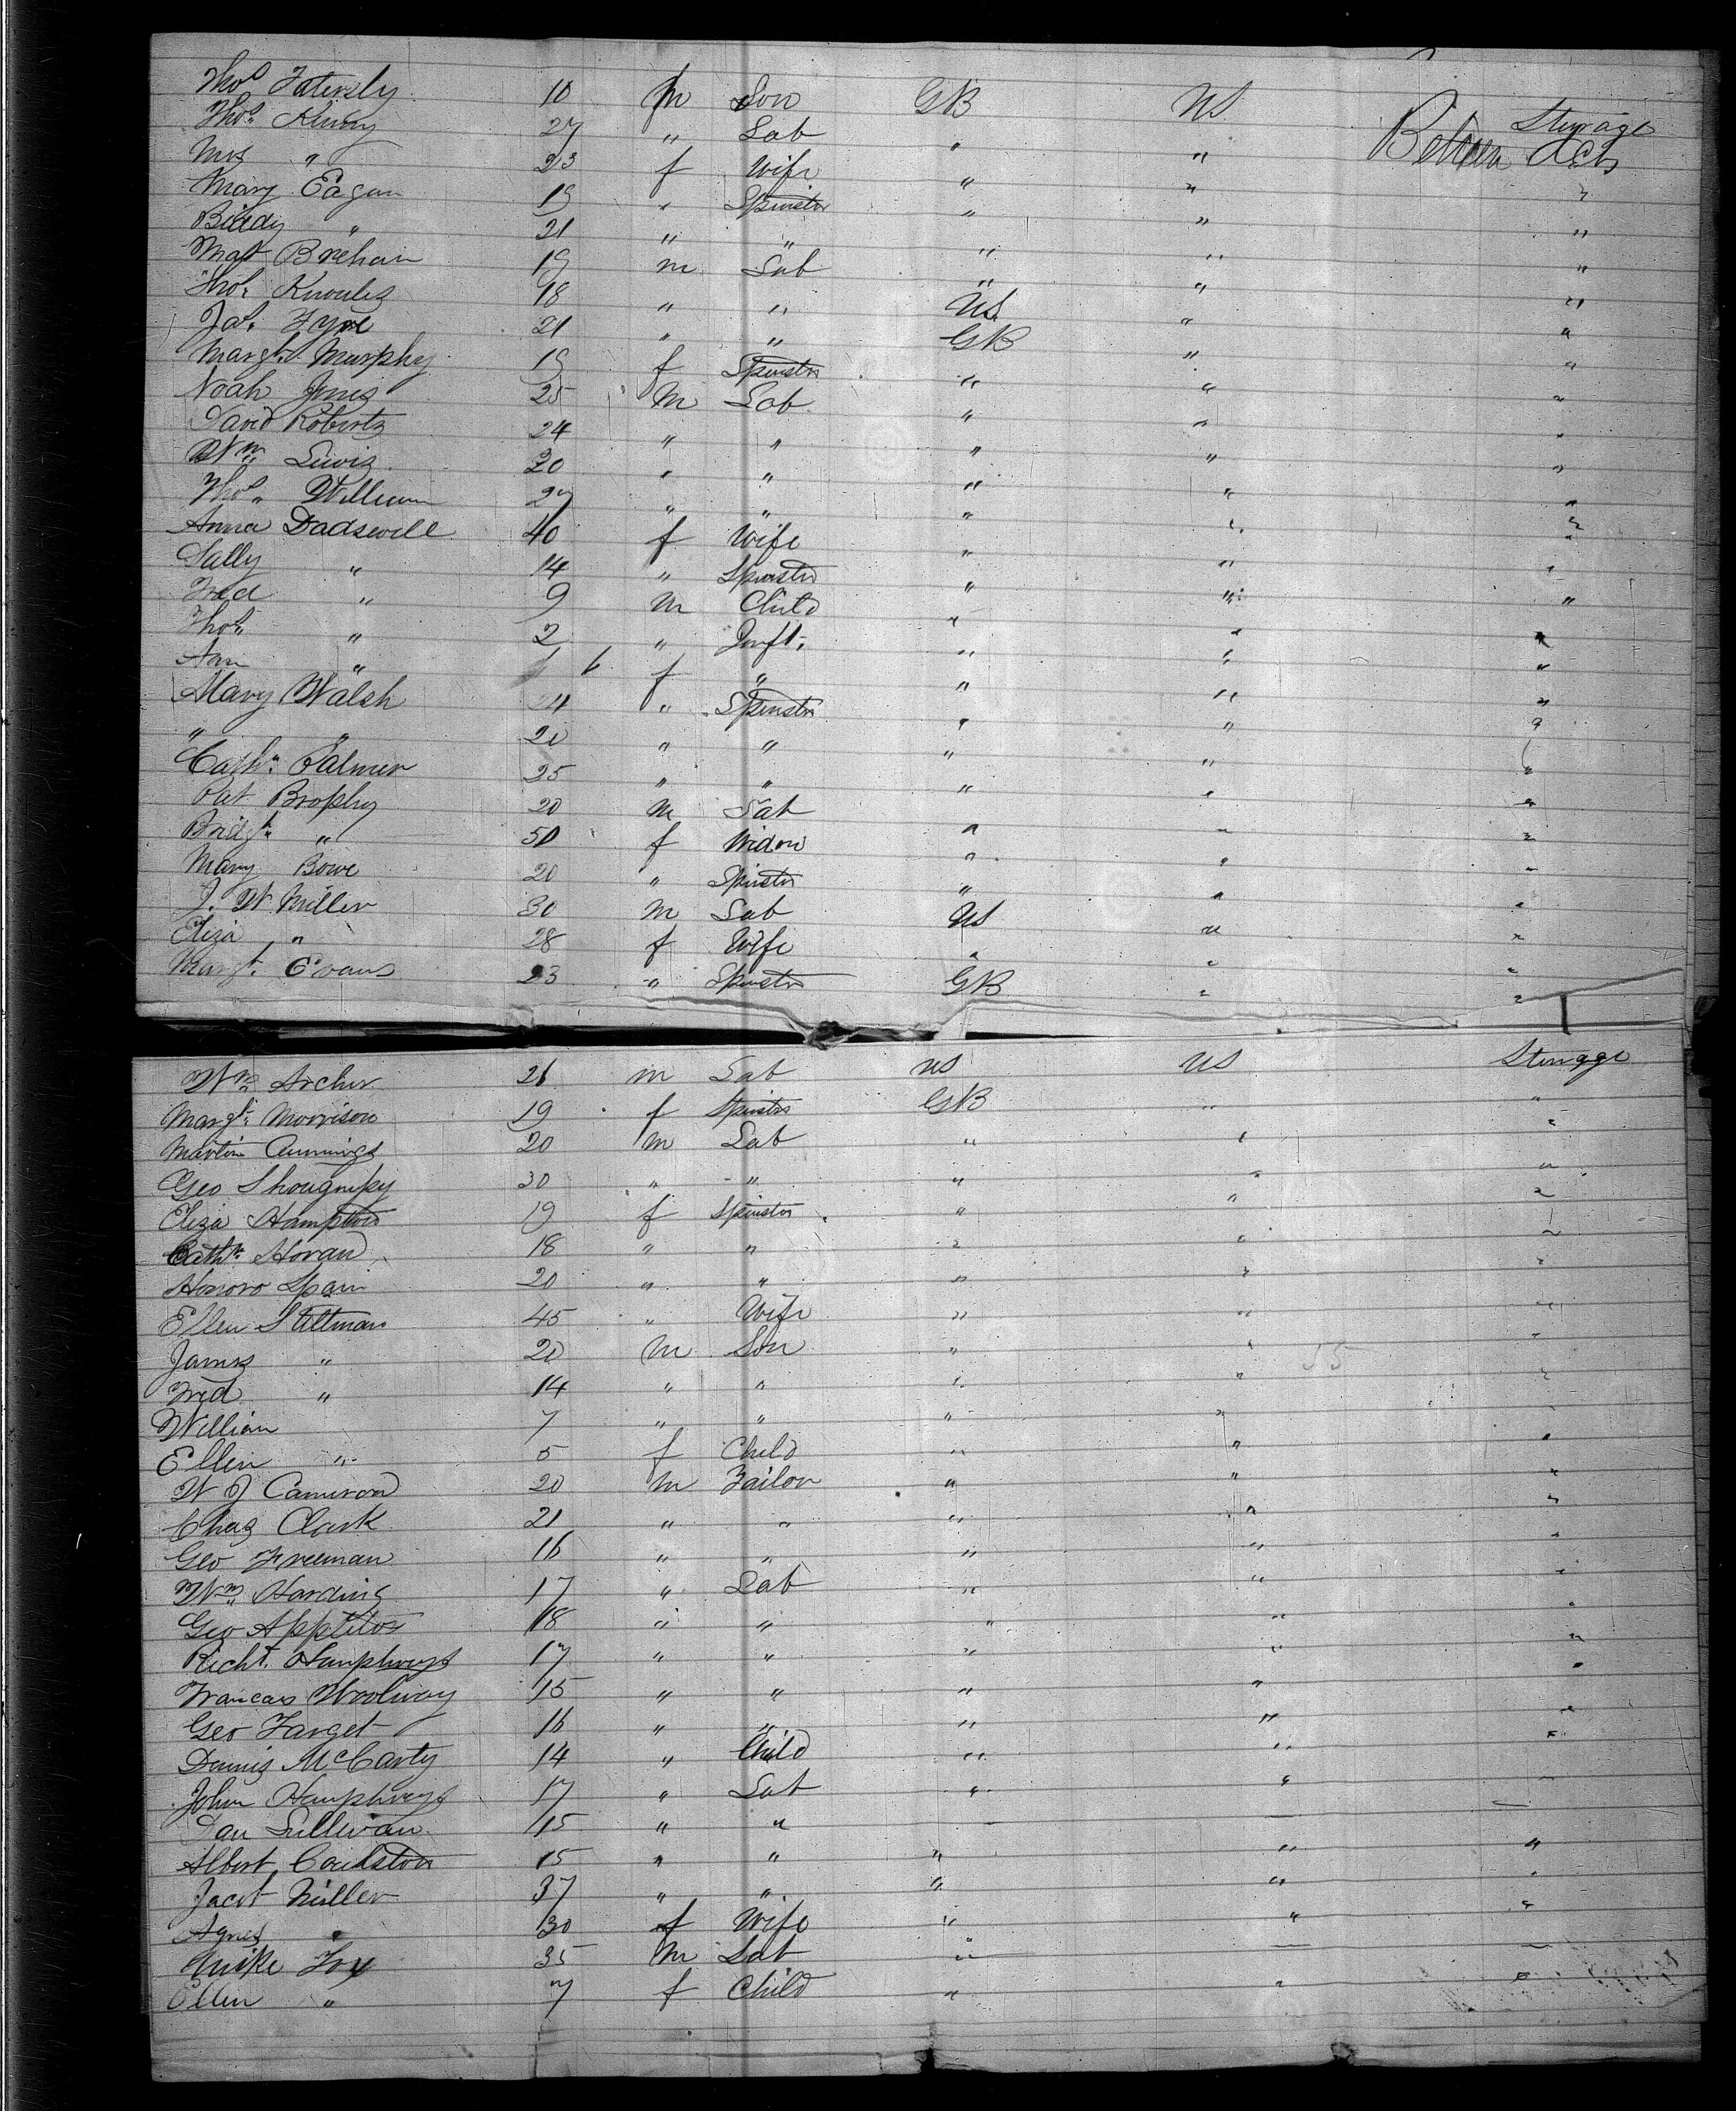 Thos Tatersly 10 m Son GB US Sterage
Thos. Kenny 27 " Lab " " Between Dcks
Mrs " 23 f Wife " " "
Mary Eagan 19 " Spinstr " " "
Biddy " 21 " " " " "
Mat Brehan 19 m Lab " " "
Thos. Knowles 18 " " US " "
Jas. Fyre 21 " " GB " "
Margt. Murphy 19 f Spinstr " " "
Noah Jones 25 m Lab " " "
David Roberts 24 " " " " "
Wm Lewis 20 " " " " "
Thos. William 27 " " " " "
Anna Dadswell 40 f Wife " " "
Sally " 14 " Spinstr " " "
Fred " 9 m Child " " "
Thos. " 2 " Inft. " " "
Ann " 6 f " " " "
Mary Walsh 24 " Spinstr " " "
" " 20 " " " " "
Cathn. Palmer 25 " " " " "
Pat Brophy 20 m Lab " " "
Bridgt. " 50 f Widow " " "
Mary Bowe 20 " Spinstr " " "
J. W. Miller 30 m Lab US " "
Eliza " 28 f Wife " " "
Margt. Evans 23 " Spinstr GB " "
Wm Archer 21 m Lab US US Sterage
Margt. Morrison 19 f Spinstr GB " "
Martin Cummings 20 m Lab " " "
Geo 30 " " " " "
Eliza Hampton 19 f Spinstr " " "
Cathn. Horan 18 " " " " "
Honoro Spain 20 " " " " "
Ellen Stittman 45 " Wife " " "
James " 20 m Son " " "
Fred " 14 " " " " "
William 7 " " " " "
Ellen " 5 f Child " " "
W J Cameron 20 m Tailor " " "
Chas Clark 21 " " " " "
Geo Freeman 16 " " " " "
Wm. Harding 17 " Lab " " "
Geo Appleton 18 " " " " "
Richt. Humphreys 17 " " " " "
Francais Woolway 15 " " " " "
Geo Target 16 " " " " "
Dennis McCarty 14 " Child " " "
John Humphreys 17 " Lab " " "
Dan Sullivan 15 " " - — —
Albert Coulston 15 " " " " "
Jacob Miller 37 " " " " "
Agnes " 30 f Wife " " "
Mike Fox 35 m Lab " — —
Ellen " 7 f Child " " "